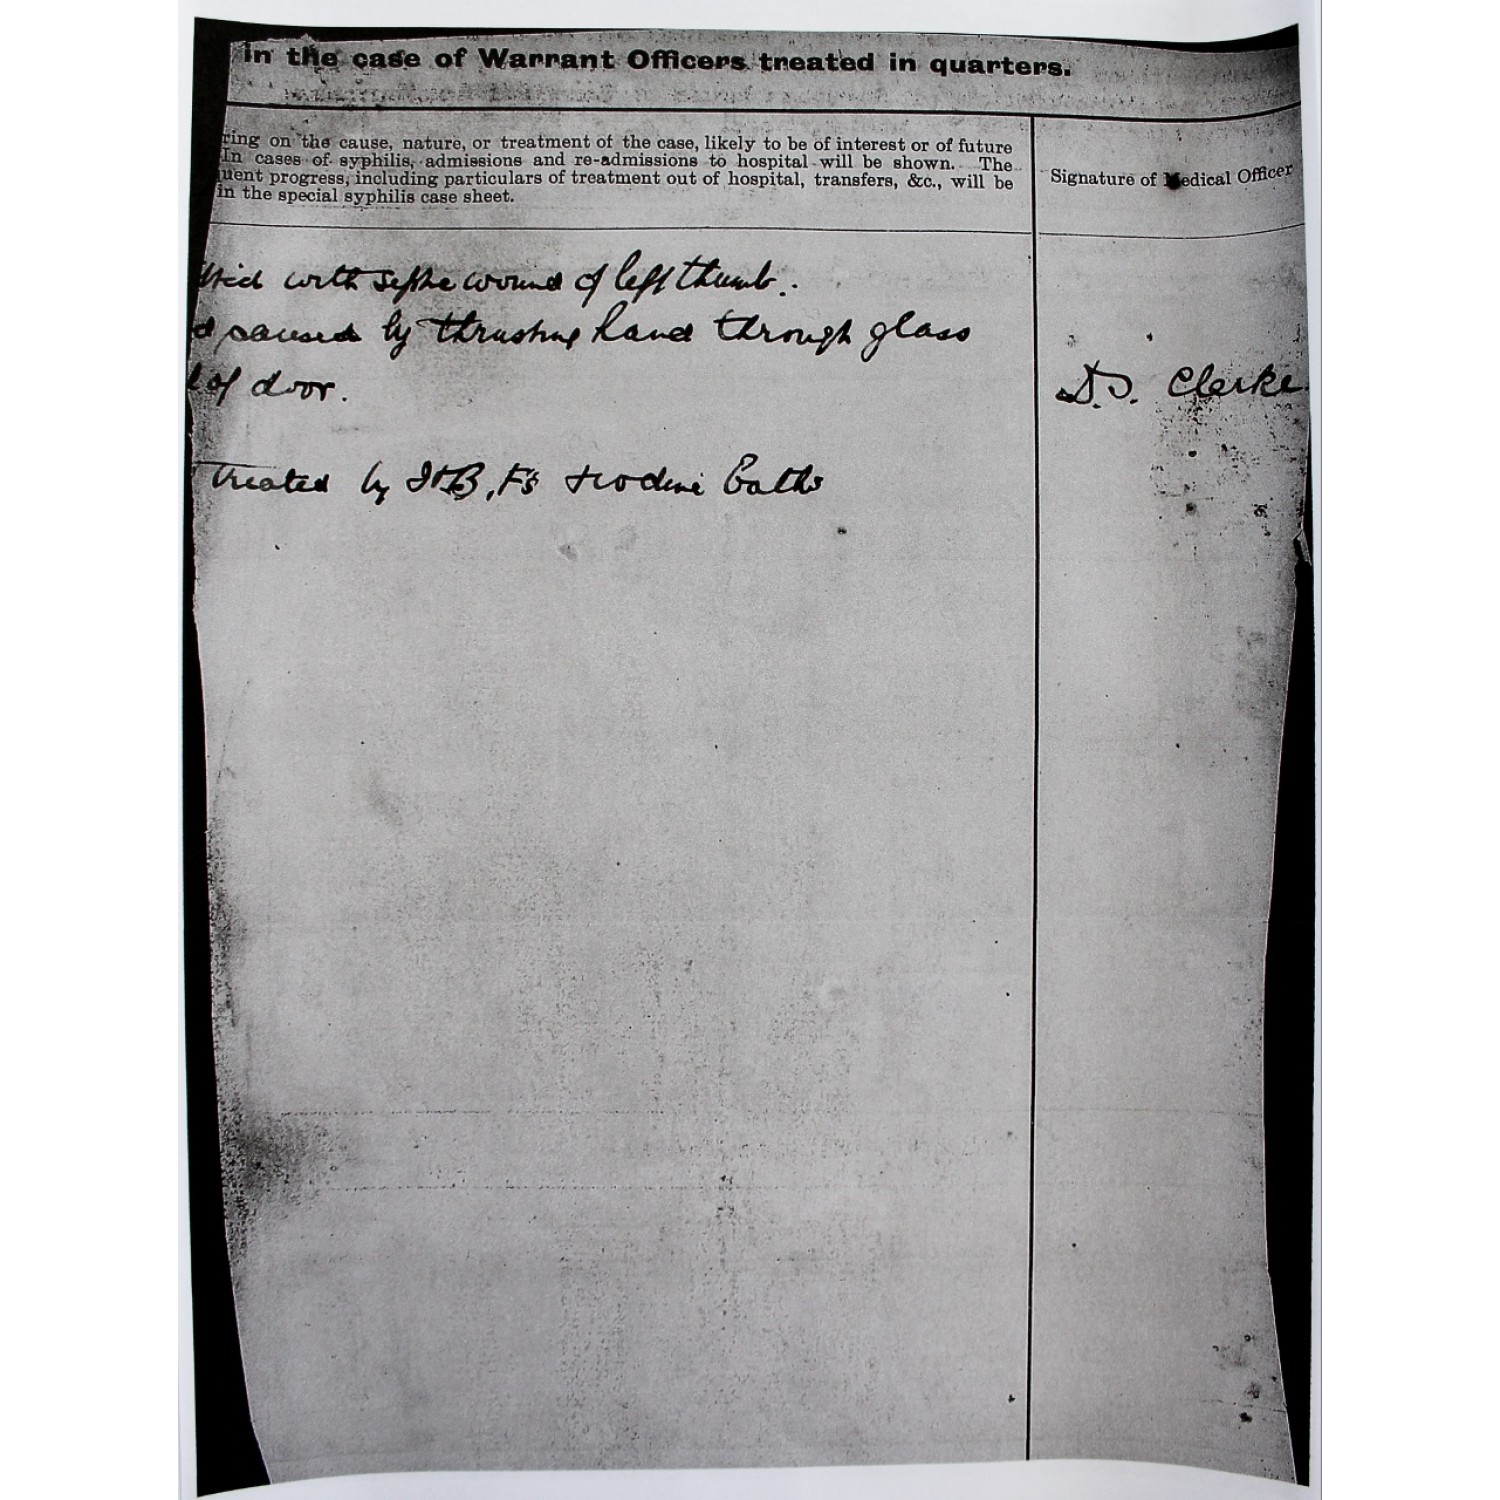 in the case of Warrant Officers treated in quarters.
ring on the cause, nature, or treatment of the case, likely to be of interest or of future
In cases of syphilis, admissions and re-admissions to hospital will be shown. The
uent progress, including particulars of treatment out of hospital, transfers, &c., will be
in the special syphilis case sheet.
Signature of Medical Officer
with septic wound of left thumb.
d caused by thrusting hand through glass
l of door.
D.S. Clarke
treated by Iodine Baths